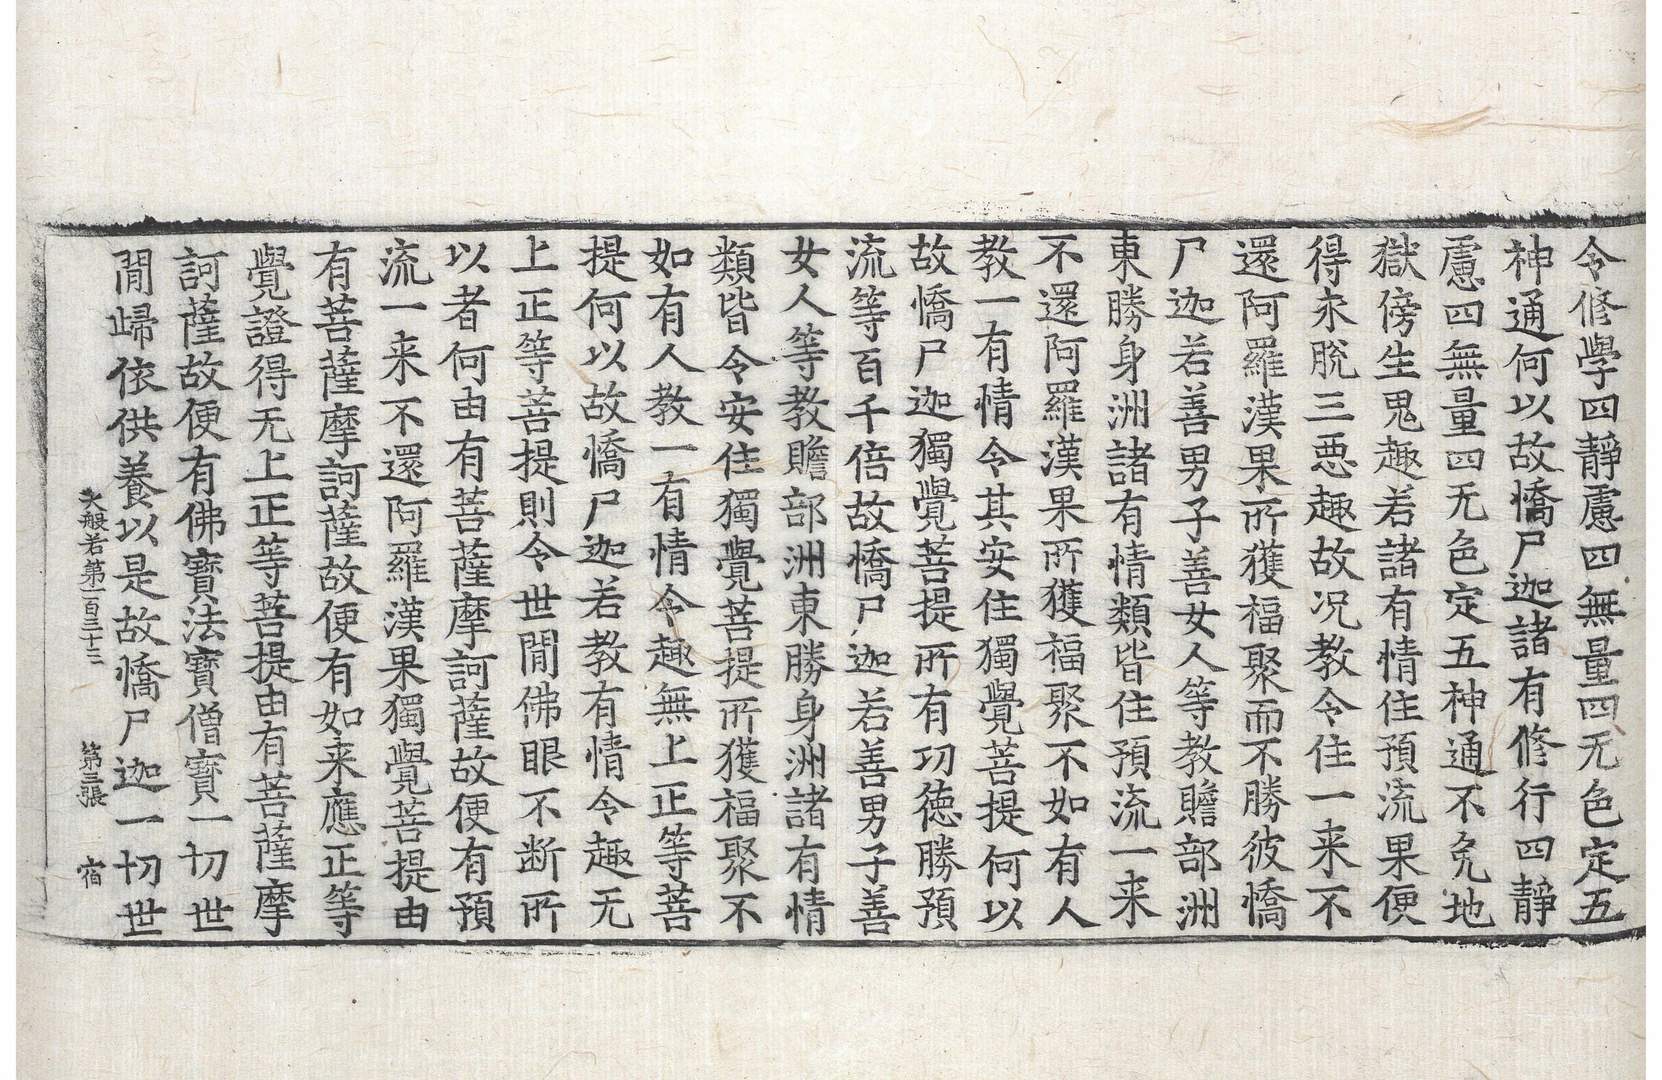 令修學四静慮四無量四无色定五
神通何以故憍尸迦諸有修行四静
慮四無量四无色定五神通不免地
獄傍生鬼趣若諸有情住預流果便
得永脫三惡趣故况教令住一来不
還阿羅漢果所獲福聚而不勝彼憍
尸迦若善男子善女人等教贍部洲
東勝身洲諸有情類皆住預流一来
不還阿羅漢果所獲福聚不如有人
教一有情令其安住獨覺菩提何以
故憍尸迦獨覺菩提所有功德勝預
流等百千倍故憍尸迦若善男子善
女人等教贍部洲東勝身洲諸有情
類皆令安住獨覺菩提所獲福聚不
如有人教一有情令趣無上正等菩
提何以故憍尸迦若教有情令趣无
上正等菩提則令世間佛眼不断所
以者何由有菩薩摩訶薩故便有預
流一来不還阿羅漢果獨覺菩提由
有菩薩摩訶薩故便有如来應正等
覺證得无上正等菩提由有菩薩摩
訶薩故便有佛寶法寶僧寶一切世
間歸依供養以是故憍尸迦一切世
大般若第一百三十三 第三張 宿